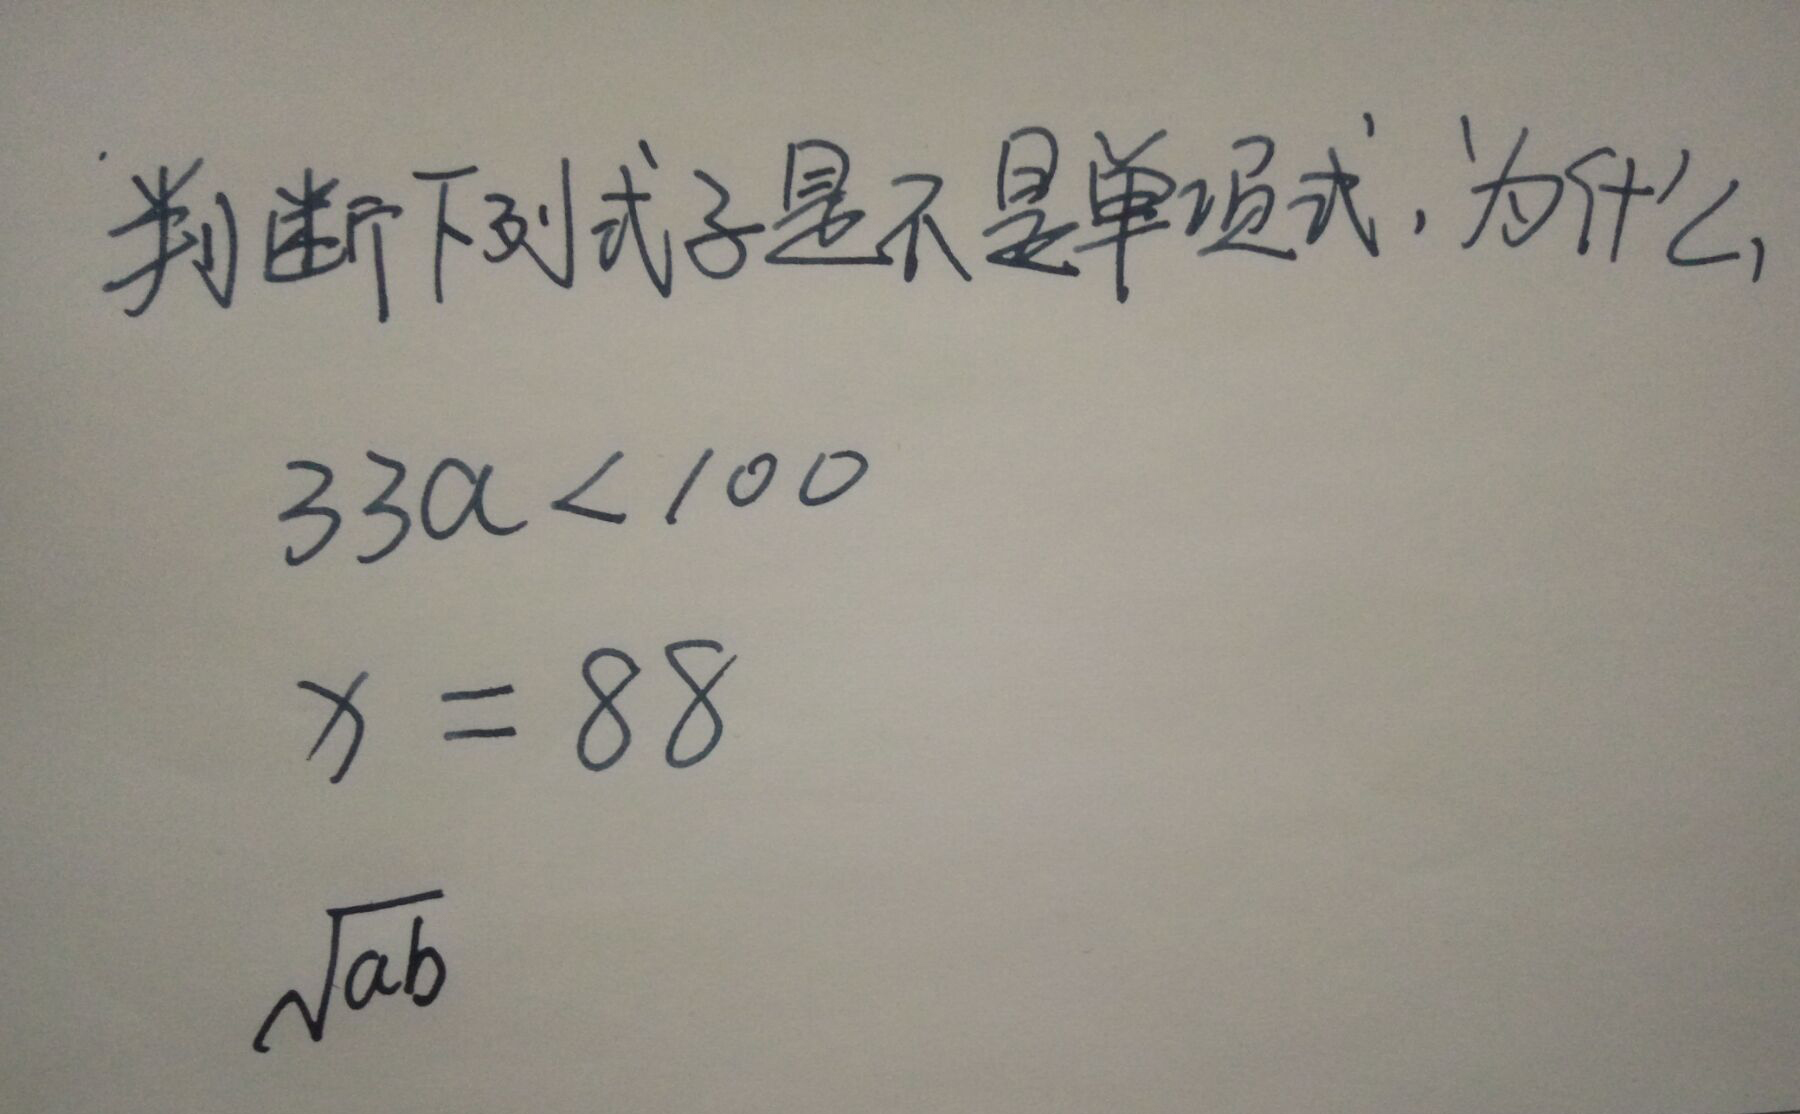 判断下列式子是不是单项式,为什么,
33a<100
x=88
√ab